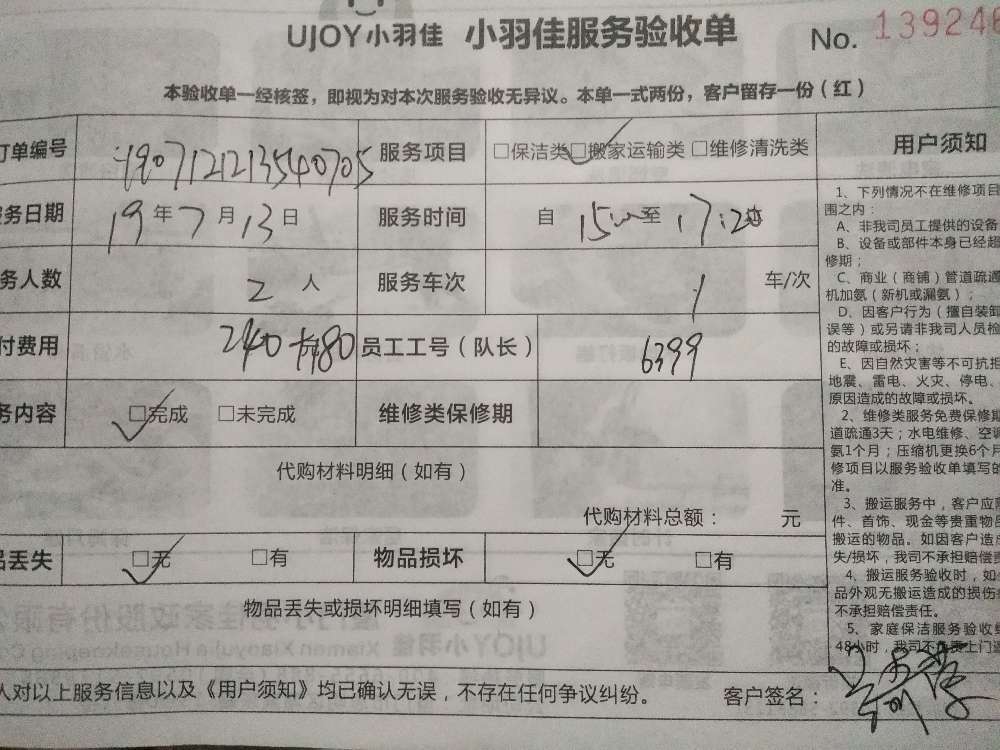 UJOY小羽佳 小羽佳服务验收单 No. 139246
本验收单一经核签，即视为对本次服务验收无异议。本单一式两份，客户留存一份（红）
订单编号 服务项目 □保洁类 □搬家运输类 □维修清洗类
务日期 19 年 7 月 13 日 服务时间 自 15 至 17:20
务人数 2 人 服务车次 1 车/次
付费用 240 员工工号（队长） 6399
务内容 □完成 □未完成 维修类保修期
代购材料明细（如有）
代购材料总额： 元
品丢失 □无 □有 物品损坏 □无 □有
物品丢失或损坏明细填写（如有）
人对以上服务信息以及《用户须知》均已确认无误，不存在任何争议纠纷。 客户签名：
用户须知
1、下列情况不在维修项目
围之内：
A、非我司员工提供的设备
B、设备或部件本身已经超
修期；
C、商业（商铺）管道疏通
机加氨（新机或漏氨）；
D、因客户行为（擅自装卸
误等）或另请非我司人员检
的故障或损坏；
E、因自然灾害等不可抗拒
地震、雷电、火灾、停电、
原因造成的故障或损坏。
2、维修类服务免费保修期
道疏通3天；水电维修、空调
氨1个月；压缩机更换6个月
修项目以服务验收单填写的
准。
3、搬运服务中，客户应
件、首饰、现金等贵重物品
搬运的物品。如因客户造成
失/损坏，我司不承担赔偿责
4、搬运服务验收时，如
品外观无搬运造成的损伤
不承担赔偿责任。
5、家庭保洁服务验收
48小时，我司不负责上门